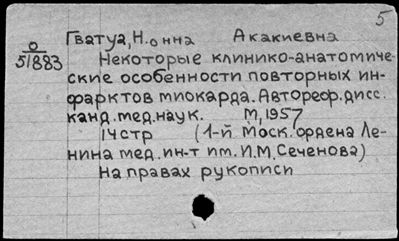 5
Гватуа, Нонна Акакиевна
О
51883
Некоторые клинико-анатомиче-
ские особенности повторных ин-
фарктов миокарда. Автореф. дисс.
канд. мед. наук. М, 1957
14 стр (1-й Моск. ордена Ле-
нина мед. ин-т им. И.М. Сеченова)
На правах рукописи